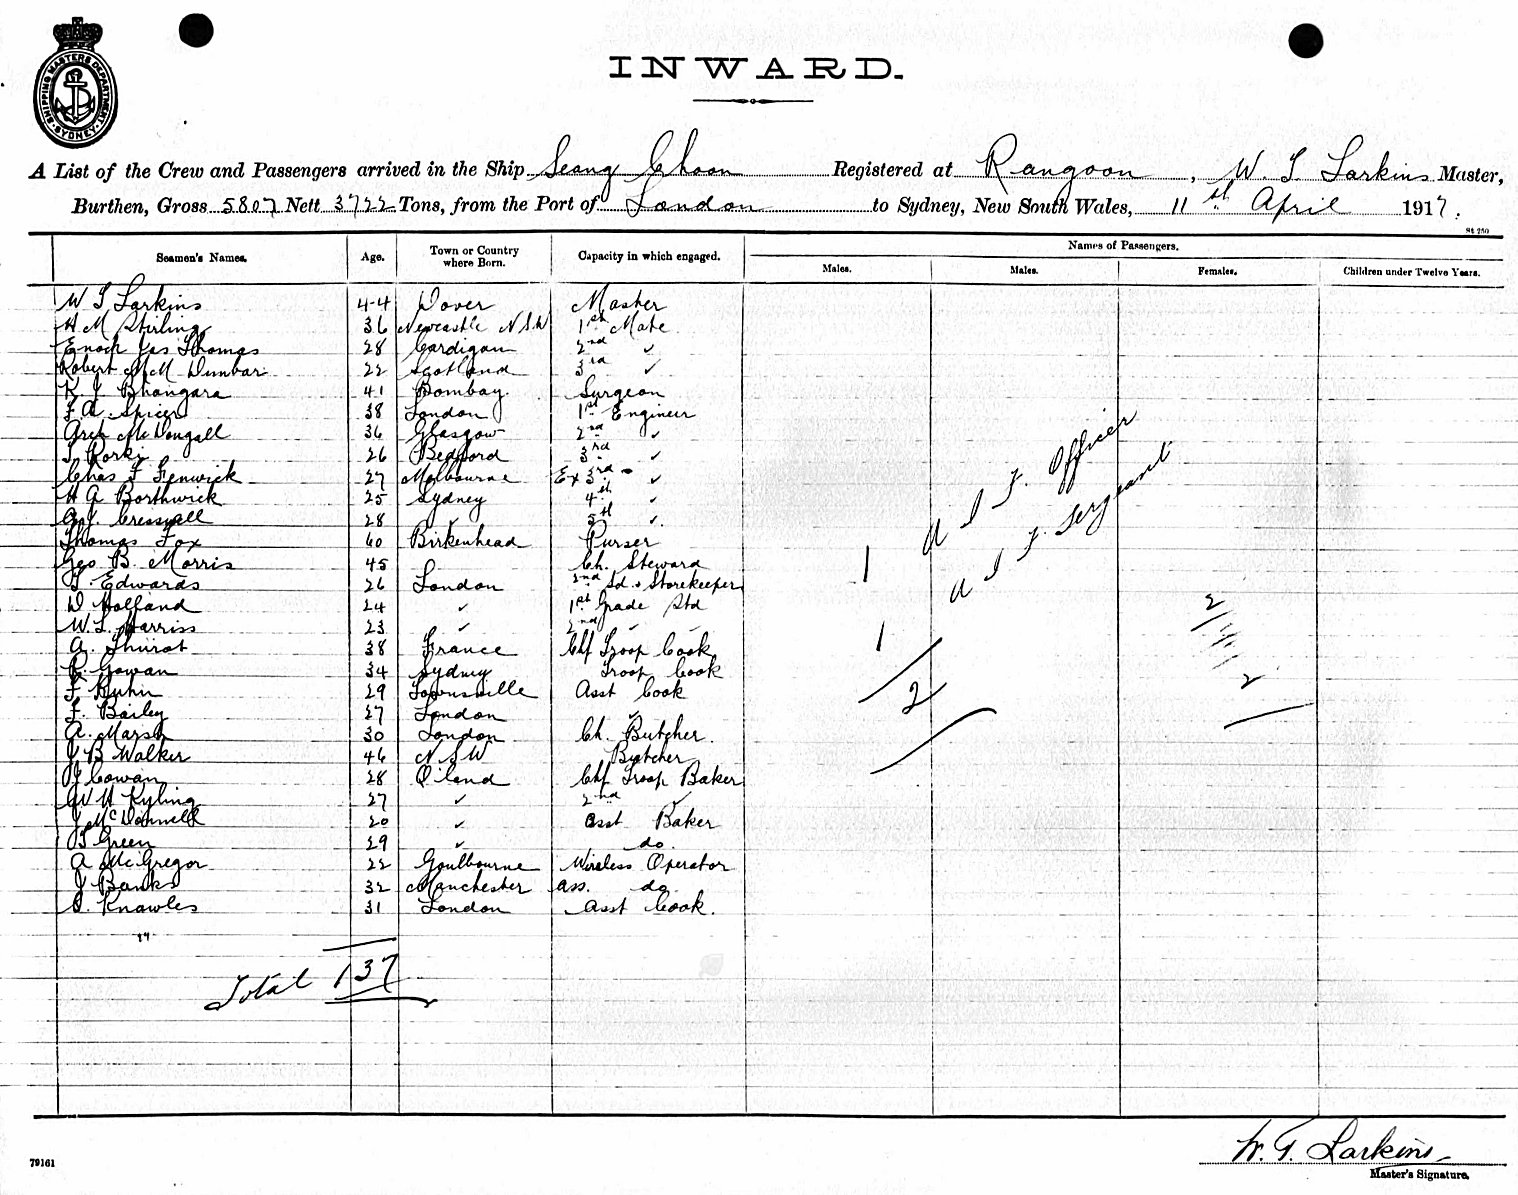 SHIPPING MASTERS DEPARTMENT
SYDNEY
INWARD.
A List of the Crew and Passengers arrived in the Ship Seang Choon Registered at Rangoon, W. T Larkins Master,
Burthen, Gross 5807 Nett 3722 Tons, from the Port of London to Sydney, New South Wales, 11th April 1917.
St 250
Seamen's Names. Age. Town or Country where Born. Capacity in which engaged. Names of Passengers.
Males. Males. Females. Children under Twelve Years.
W T Larkins 44 Dover Master
H M Stirling 36 Newcastle N.S.W 1st Mate
Enoch Jas Thomas 28 Cardigan 2nd ✓
Robert McM Dunbar 22 Scotland 3rd ✓
K. J. Bhangara 41 Bombay Surgeon
F. A. Spicer 38 London 1st Engineer
Arch McDougall 36 Glasgow 2nd ✓
26 Bedford 3rd ✓
Chas F Fenwick 27 Melbourne Ex 3rd ✓
H A Borthwick 25 Sydney 4th ✓
28 ✓ 5th ✓
Thomas Fox 60 Birkenhead Purser
Geo B. Morris 45 Ch. Steward
T. Edwards 26 London 2nd Sd. & Storekeeper
D Holland 24 ✓ 1st Grade Std
W. L. Harriss 23 ✓ 2nd ✓ ✓
A. Thurot 38 France Chf Troop Cook
R. Gowan 34 Sydney Troop Cook
F Kuhn 29 Townsville Asst Cook
F. Bailey 27 London ✓
A. Marsh 30 London Ch. Butcher.
J B Walker 46 N S W Butcher
J Cowan 28 Q'land Chf Troop Baker
W H Kyling 27 ✓ 2nd ✓
J McDonnell 20 ✓ Asst Baker
T Green 29 ✓ do.
A McGregor 22 Goulbourne Wireless Operator
J Banks 32 Manchester Ass. do
S. Knowles 31 London Asst Cook.
1 A I F. Officer
1 A I F. Sergeant
2
2
2
29
Total 137
W. T. Larkins
Master's Signature.
79161